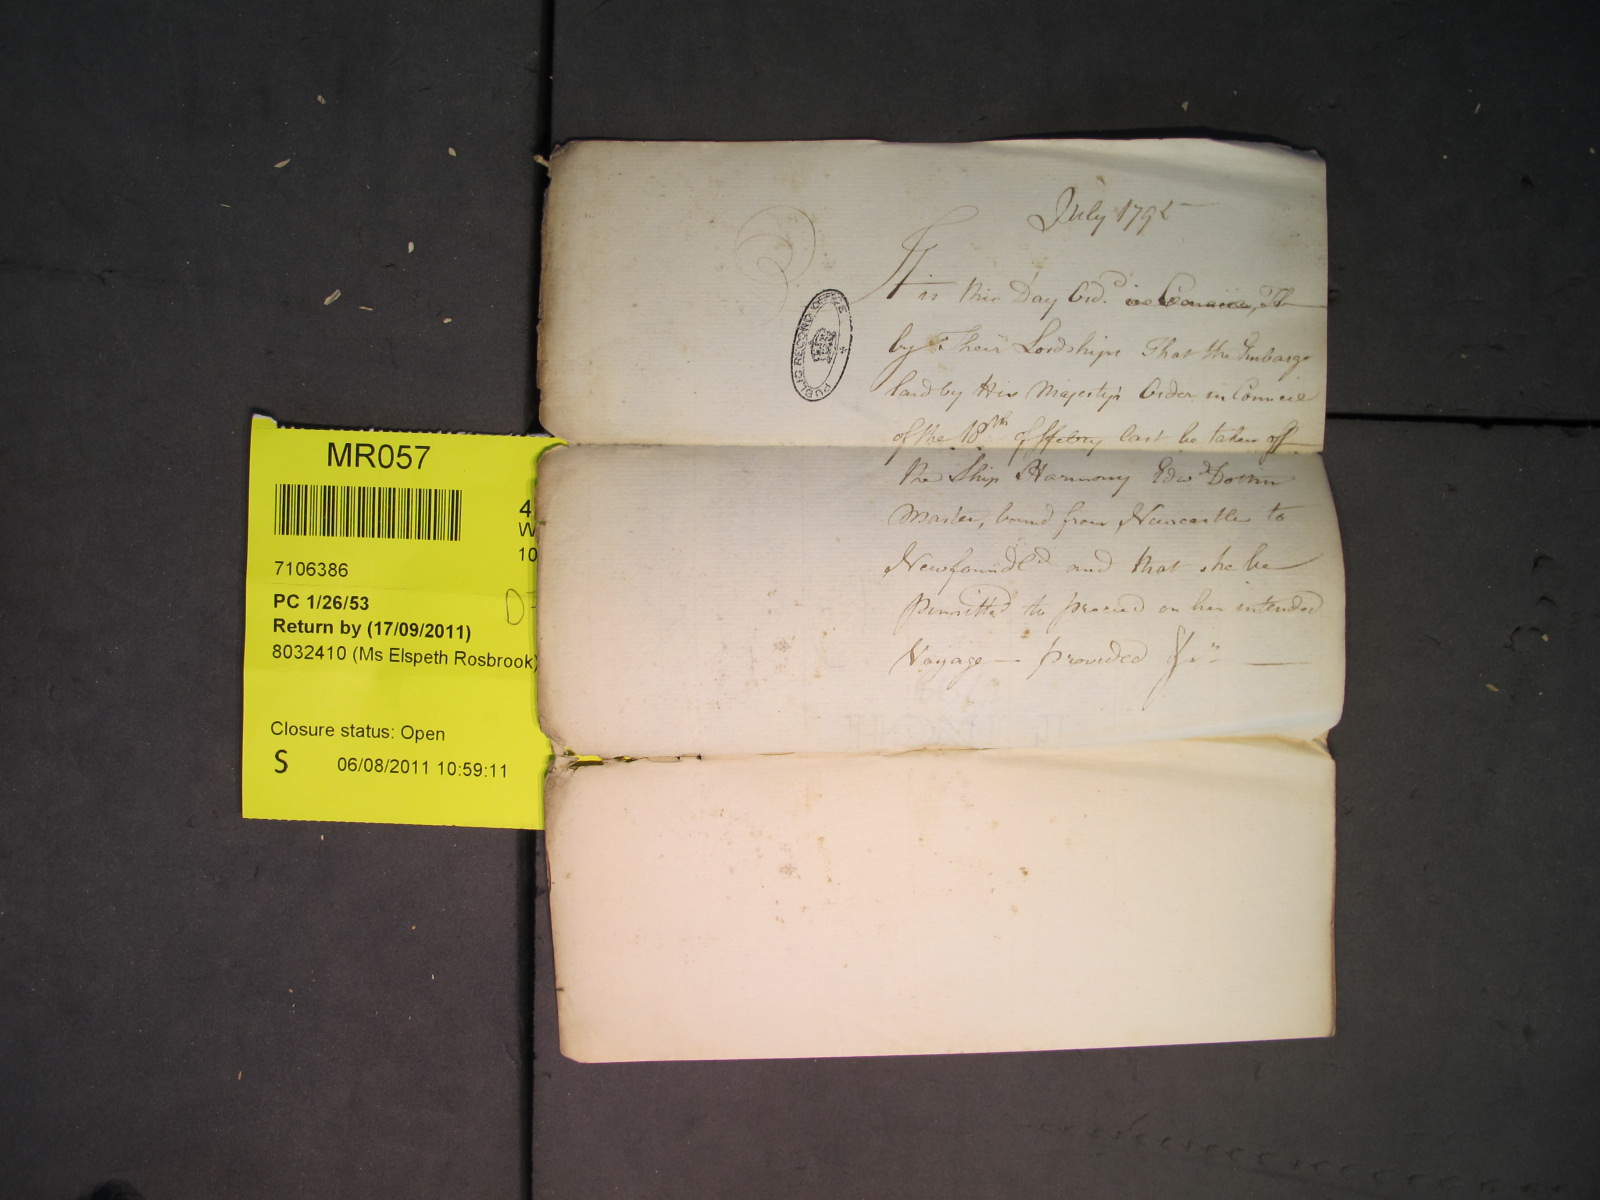 July 1795
It is this Day Ord.d in Council, th
by Their Lordships That the Embargo
laid by His Majesty's Order in Council
of the 18th of Febry last be taken off
the Ship Harmony Edwd
Master, bound from Newcastle to
Newfoundld and that she be
permitted to proceed on her intended
Voyage — provided &c —
PUBLIC RECORD OFFICE
MR057
4
W
10
7106386
PC 1/26/53
Return by (17/09/2011)
8032410 (Ms Elspeth Rosbrook)
Closure status: Open
S 06/08/2011 10:59:11